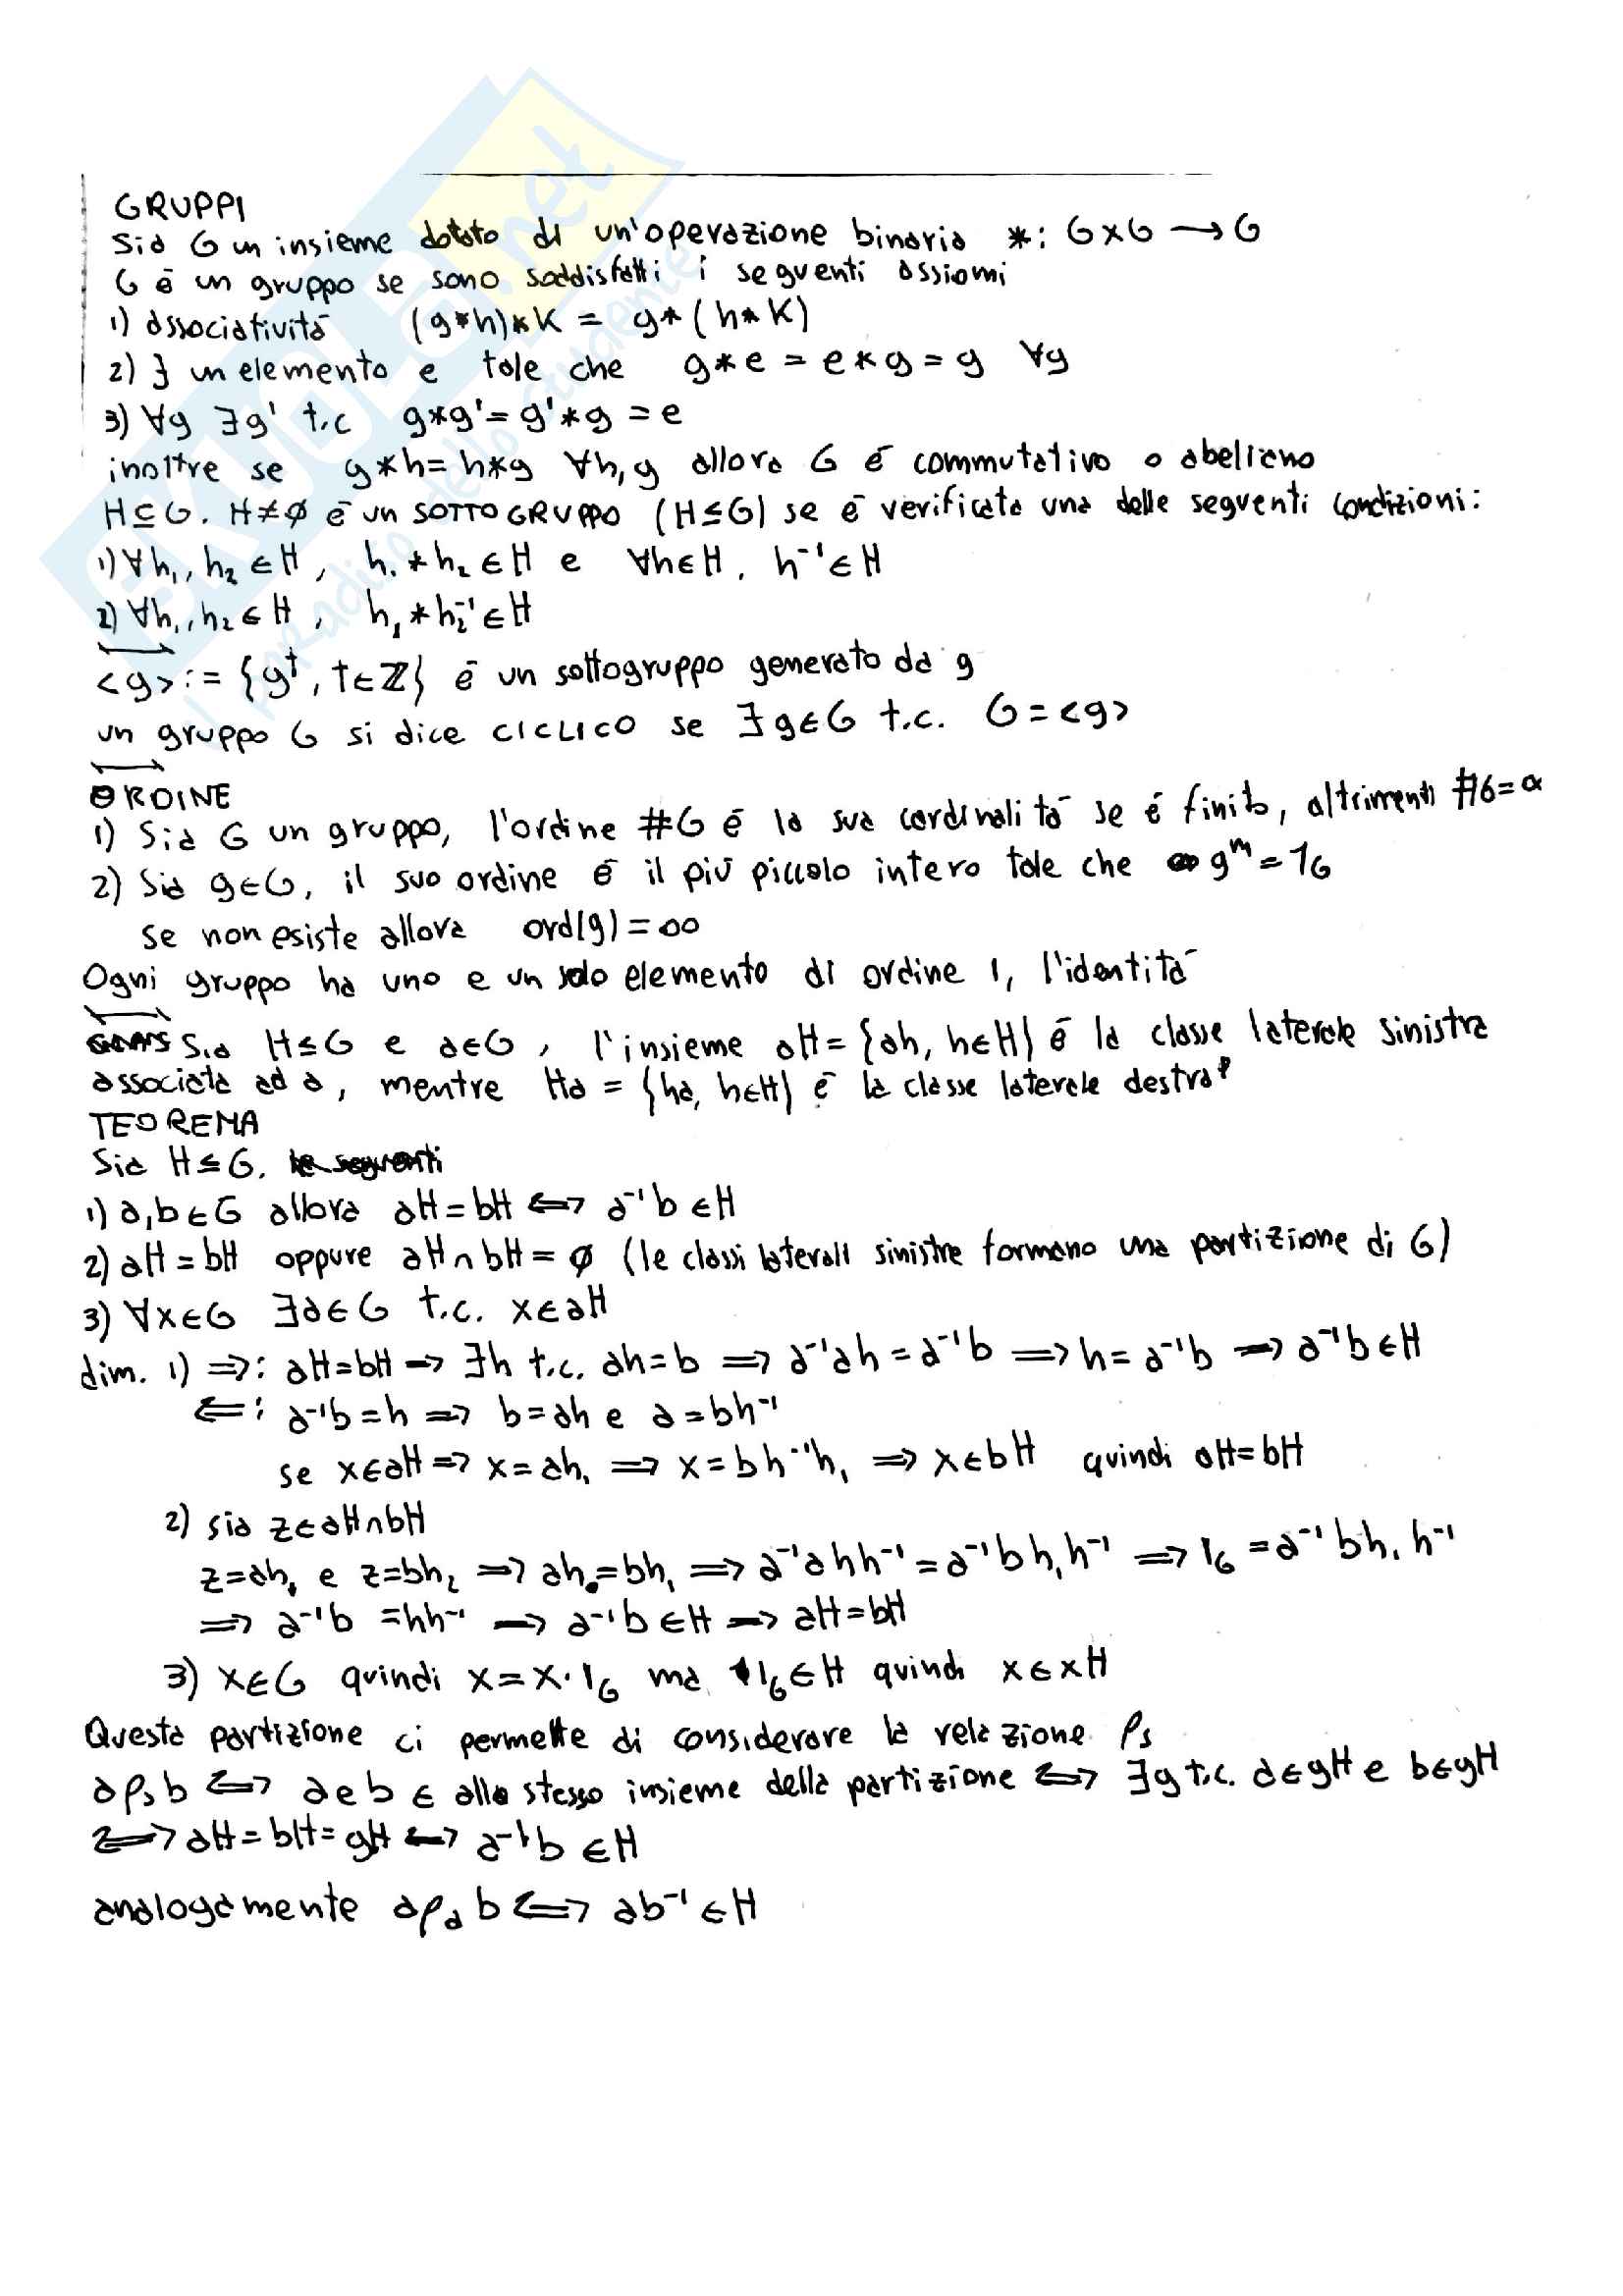 GRUPPI
Sia G un insieme dotato di un'operazione binaria *: G×G → G
G è un gruppo se sono soddisfatti i seguenti assiomi
1) associatività (g*h)*K = g*(h*K)
2) ∃ un elemento e tale che g*e = e*g = g ∀g
3) ∀g ∃g' t.c g*g' = g'*g = e
inoltre se g*h = h*g ∀h,g allora G è commutativo o abeliano
H⊆G. H≠∅ è un SOTTOGRUPPO (H≤G) se è verificata una delle seguenti condizioni:
1) ∀h₁, h₂ ∈ H, h₁*h₂ ∈ H e ∀h∈H, h⁻¹∈H
2) ∀h₁, h₂ ∈ H, h₁*h₂⁻¹ ∈ H
<g> := {gᵗ, t∈ℤ} è un sottogruppo generato da g
un gruppo G si dice CICLICO se ∃ g∈G t.c. G = <g>
ORDINE
1) Sia G un gruppo, l'ordine #G è la sua cardinalità se è finito, altrimenti #G=∞
2) Sia g∈G, il suo ordine è il più piccolo intero tale che gᵐ = 1_G
se non esiste allora ord(g) = ∞
Ogni gruppo ha uno e un solo elemento di ordine 1, l'identità
Sia H≤G e a∈G, l'insieme aH = {ah, h∈H} è la classe laterale sinistra
associata ad a, mentre Ha = {ha, h∈H} è la classe laterale destra
TEOREMA
Sia H≤G. le seguenti
1) a,b∈G allora aH = bH ⟺ a⁻¹b ∈ H
2) aH = bH oppure aH ∩ bH = ∅ (le classi laterali sinistre formano una partizione di G)
3) ∀x∈G ∃a∈G t.c. x∈aH
dim. 1) ⇒: aH=bH → ∃h t.c. ah=b ⇒ a⁻¹ah = a⁻¹b ⇒ h = a⁻¹b ⇒ a⁻¹b∈H
⇐: a⁻¹b = h ⇒ b=ah e a=bh⁻¹
se x∈aH ⇒ x=ah₁ ⇒ x=bh⁻¹h₁ ⇒ x∈bH quindi aH=bH
2) sia z∈aH∩bH
z=ah₁ e z=bh₂ ⇒ ah=bh₁ ⇒ a⁻¹ahh⁻¹ = a⁻¹bh₁h⁻¹ ⇒ 1_G = a⁻¹bh₁h⁻¹
⇒ a⁻¹b = hh⁻¹ → a⁻¹b ∈H → aH=bH
3) x∈G quindi x=x·1_G ma 1_G∈H quindi x∈xH
Questa partizione ci permette di considerare la relazione ρₛ
aρₛb ⟺ a e b ∈ allo stesso insieme della partizione ⟺ ∃g t.c. a∈gH e b∈gH
⟺ aH = bH = gH ⟷ a⁻¹b ∈H
analogamente aρ_d b ⟺ ab⁻¹ ∈ H